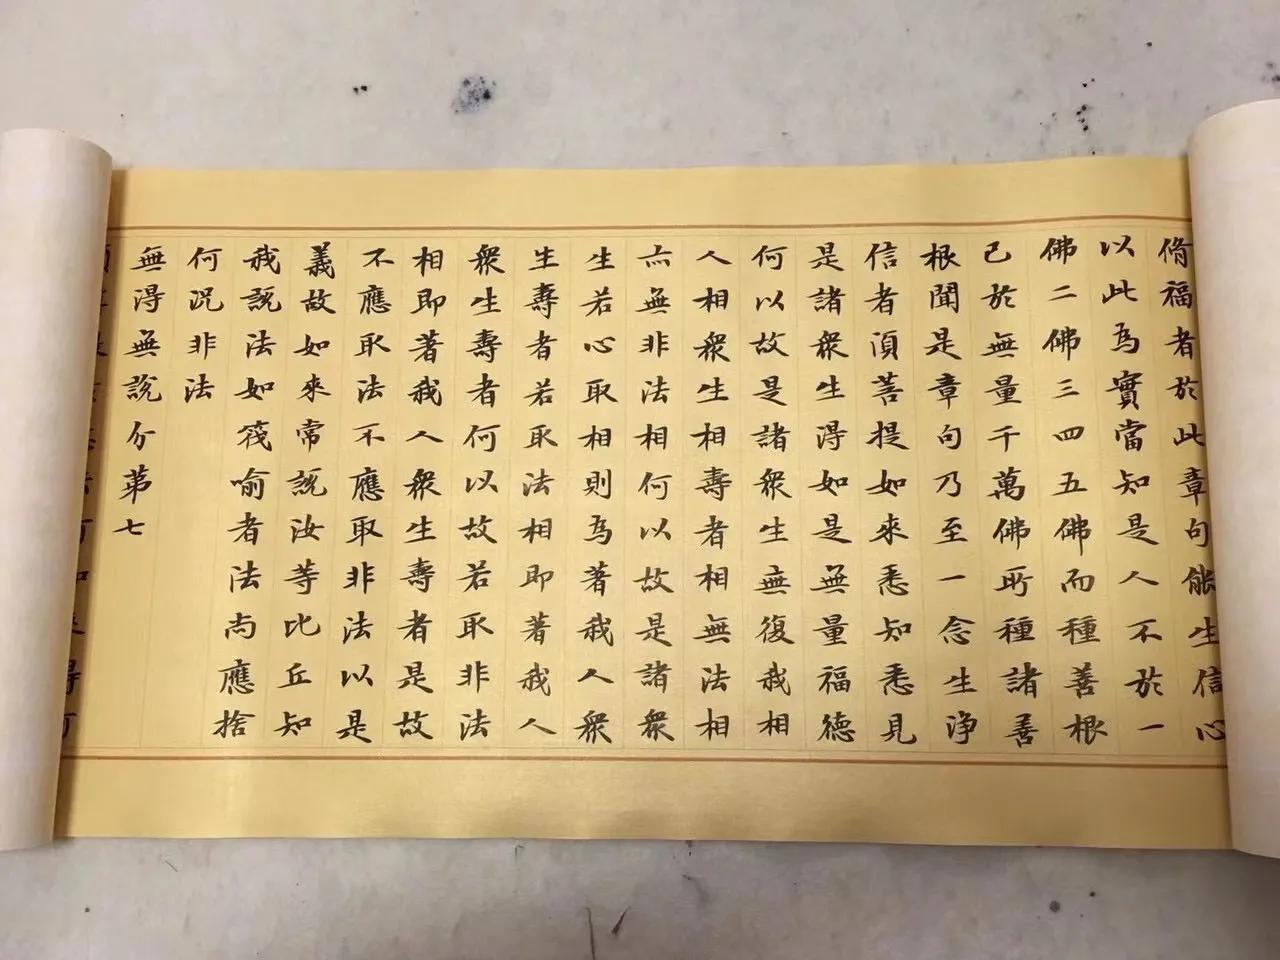 脩福者於此章句能生信心
以此為實當知是人不於一
佛二佛三四五佛而種善根
已於無量千萬佛所種諸善
根聞是章句乃至一念生淨
信者湏菩提如來悉知悉見
是諸衆生得如是無量福德
何以故是諸衆生無復我相
人相衆生相壽者相無法相
亦無非法相何以故是諸衆
生若心取相則為著我人衆
生壽者若取法相即著我人
衆生壽者何以故若取非法
相即著我人衆生壽者是故
不應取法不應取非法以是
義故如來常說汝等比丘知
我說法如筏喻者法尚應捨
何況非法
無得無說分第七